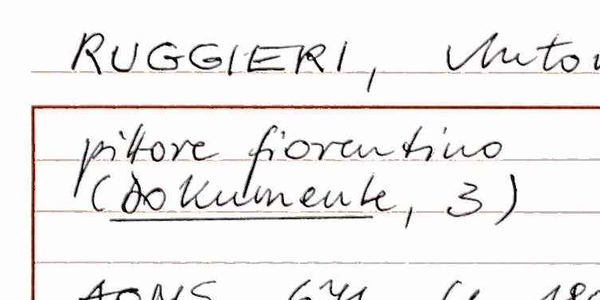 RUGGIERI, Anton
pittore fiorentino
(Dokumente, 3)